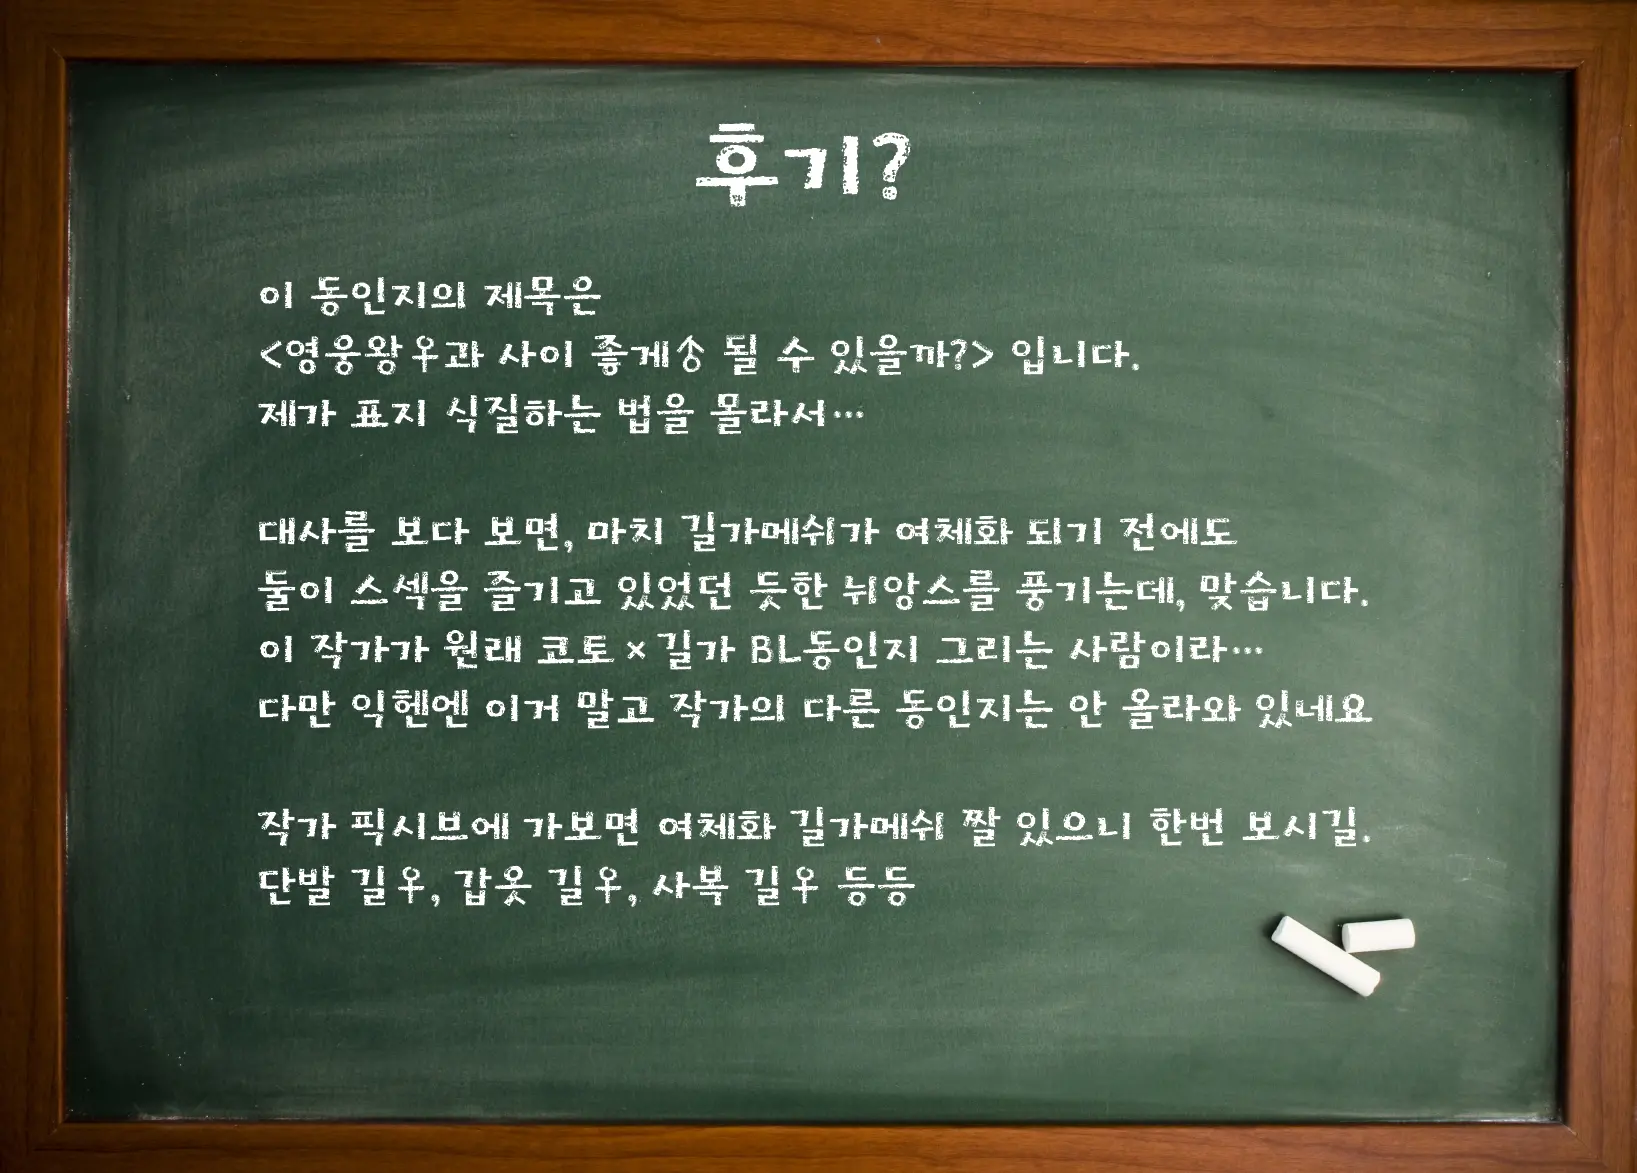 후기?
이 동인지의 제목은
<영웅왕♀과 사이 좋게⇧ 될 수 있을까?> 입니다.
제가 표지 식질하는 법을 몰라서…
대사를 보다 보면, 마치 길가메쉬가 여체화 되기 전에도
둘이 스섹을 즐기고 있었던 듯한 뉘앙스를 풍기는데, 맞습니다.
이 작가가 원래 코토×길가 BL동인지 그리는 사람이라…
다만 익헨엔 이거 말고 작가의 다른 동인지는 안 올라와 있네요
작가 픽시브에 가보면 여체화 길가메쉬 짤 있으니 한번 보시길.
단발 길♀, 갑옷 길♀, 사복 길♀ 등등